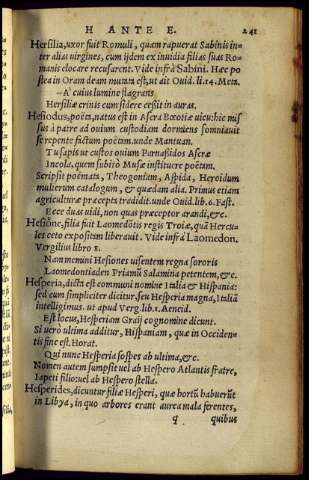 H ANTE E. 241
Hersilia, uxor fuit Romuli, quam rapuerat Sabinis in-
ter alias uirgines, cum ijdem ex inuitatu filias suas Ro-
manis elocare recusarent. Vide infrà Sabini. Hæc po
stea in Oram deam mutata est, ut ait Ouid. li. 14. Meta.
—A' cuius lumine flagrans
Hersiliæ crinis cum sidere cessit in auras.
Hesiodus, poëta, natus est in Ascra Bœotiæ uico: hic mis
sus à patre ad ouium custodiam dormiens somniauit
se repente fictum poëtam. unde Mantuan.
Tu sapis ut custos ouium Parnasidos Ascræ
Incola, quem subitò Musæ instituere poëtam.
Scripsit poëmata, Theogoniam, Aspida, Heroidum
mulierum catalogum, & quædam alia. Primus etiam
agriculturæ præcepta tradidit. unde Ouid. lib. 6. Fast.
Ecce duas uidi, non quas præceptor arandi, &c.
Hesione, filia fuit Laomedōtis regis Troiæ, quā Hercu-
les ceto expositam liberauit. Vide infrà Laomedon.
Vergilius libro 8.
Nam memini Hesiones uisentem regna sororis
Laomedontiaden Priamū Salamina petentem, &c.
Hesperia, dicta est communi nomine Italia & Hispania:
sed cum simpliciter dicitur, seu Hesperia magna, Italiā
intelligimus. ut apud Verg. lib. 1. Aeneid.
Est locus, Hesperiam Graij cognomine dicunt.
Si uerò ultima additur, Hispaniam, quæ in Occiden-
tis fine est. Horat.
Qui nunc Hesperia sospes ab ultima, &c.
Nomen autem sumpsit uel ab Hespero Atlantis fratre,
Iapeti filio: uel ab Hespero stella.
Hesperides, dicuntur filiæ Hesperi, quæ hortū habuerūt
in Libya, in quo arbores erant aurea mala ferentes,
q quibus